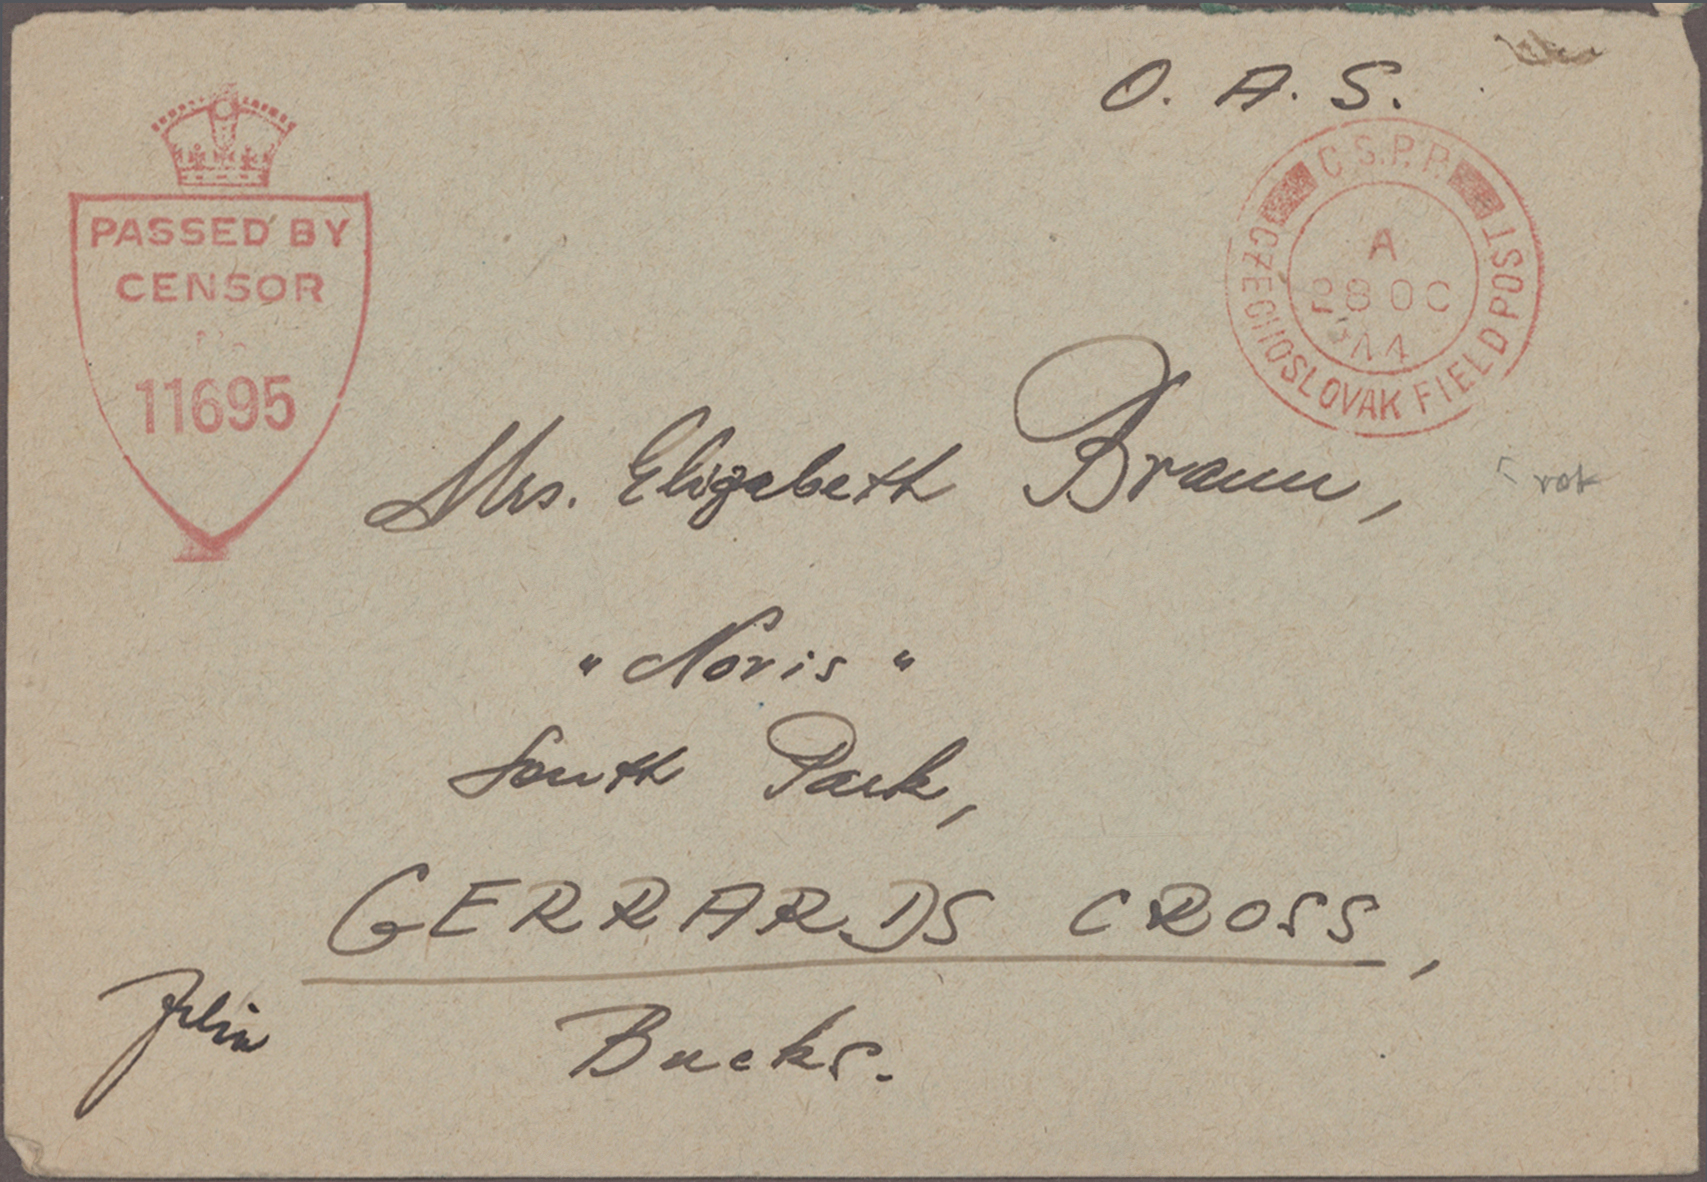 O. A. S.
PASSED BY
CENSOR
11695
C.S.P.P.
CZECHOSLOVAK FIELD POST
A
28 OC
44
Mrs. Elizabeth Braun,
"Noris"
South Park,
GERRARDS CROSS,
Bucks.